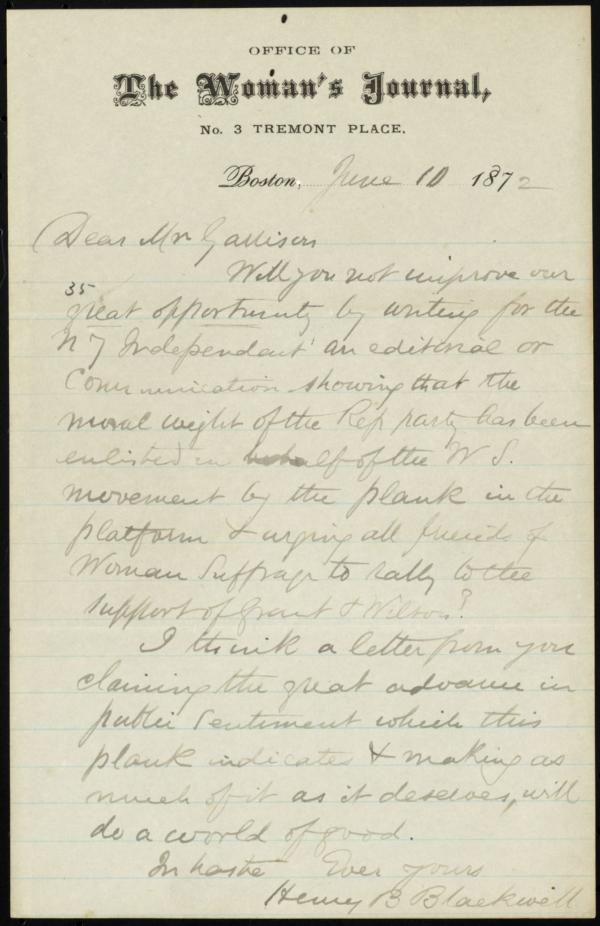 OFFICE OF
The Woman's Journal,
No. 3 TREMONT PLACE.
Boston, June 10 1872
Dear Mr Garrison
Will you not improve our
35
great opportunity by writing for the
N Y Independent an editorial or
Communication showing that the
moral weight of the Rep party has been
enlisted in behalf of the W S.
movement by the plank in the
platform & urging all friends of
Woman Suffrage to rally to the
support of Grant & Wilson?
I think a letter from you
claiming the great advance in
public sentiment which this
plank indicates & making as
much of it as it deserves, will
do a world of good.
In haste Ever yours
Henry B Blackwell